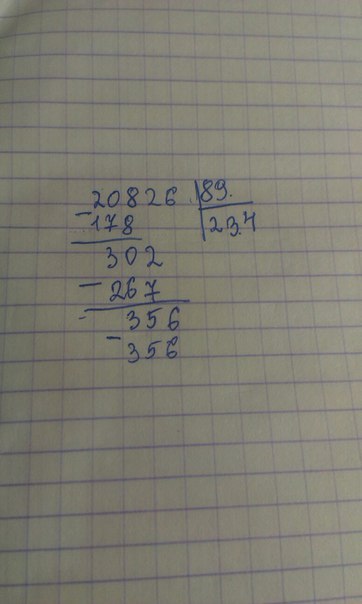 20826 89
-178 234
302
- 267
356
- 356